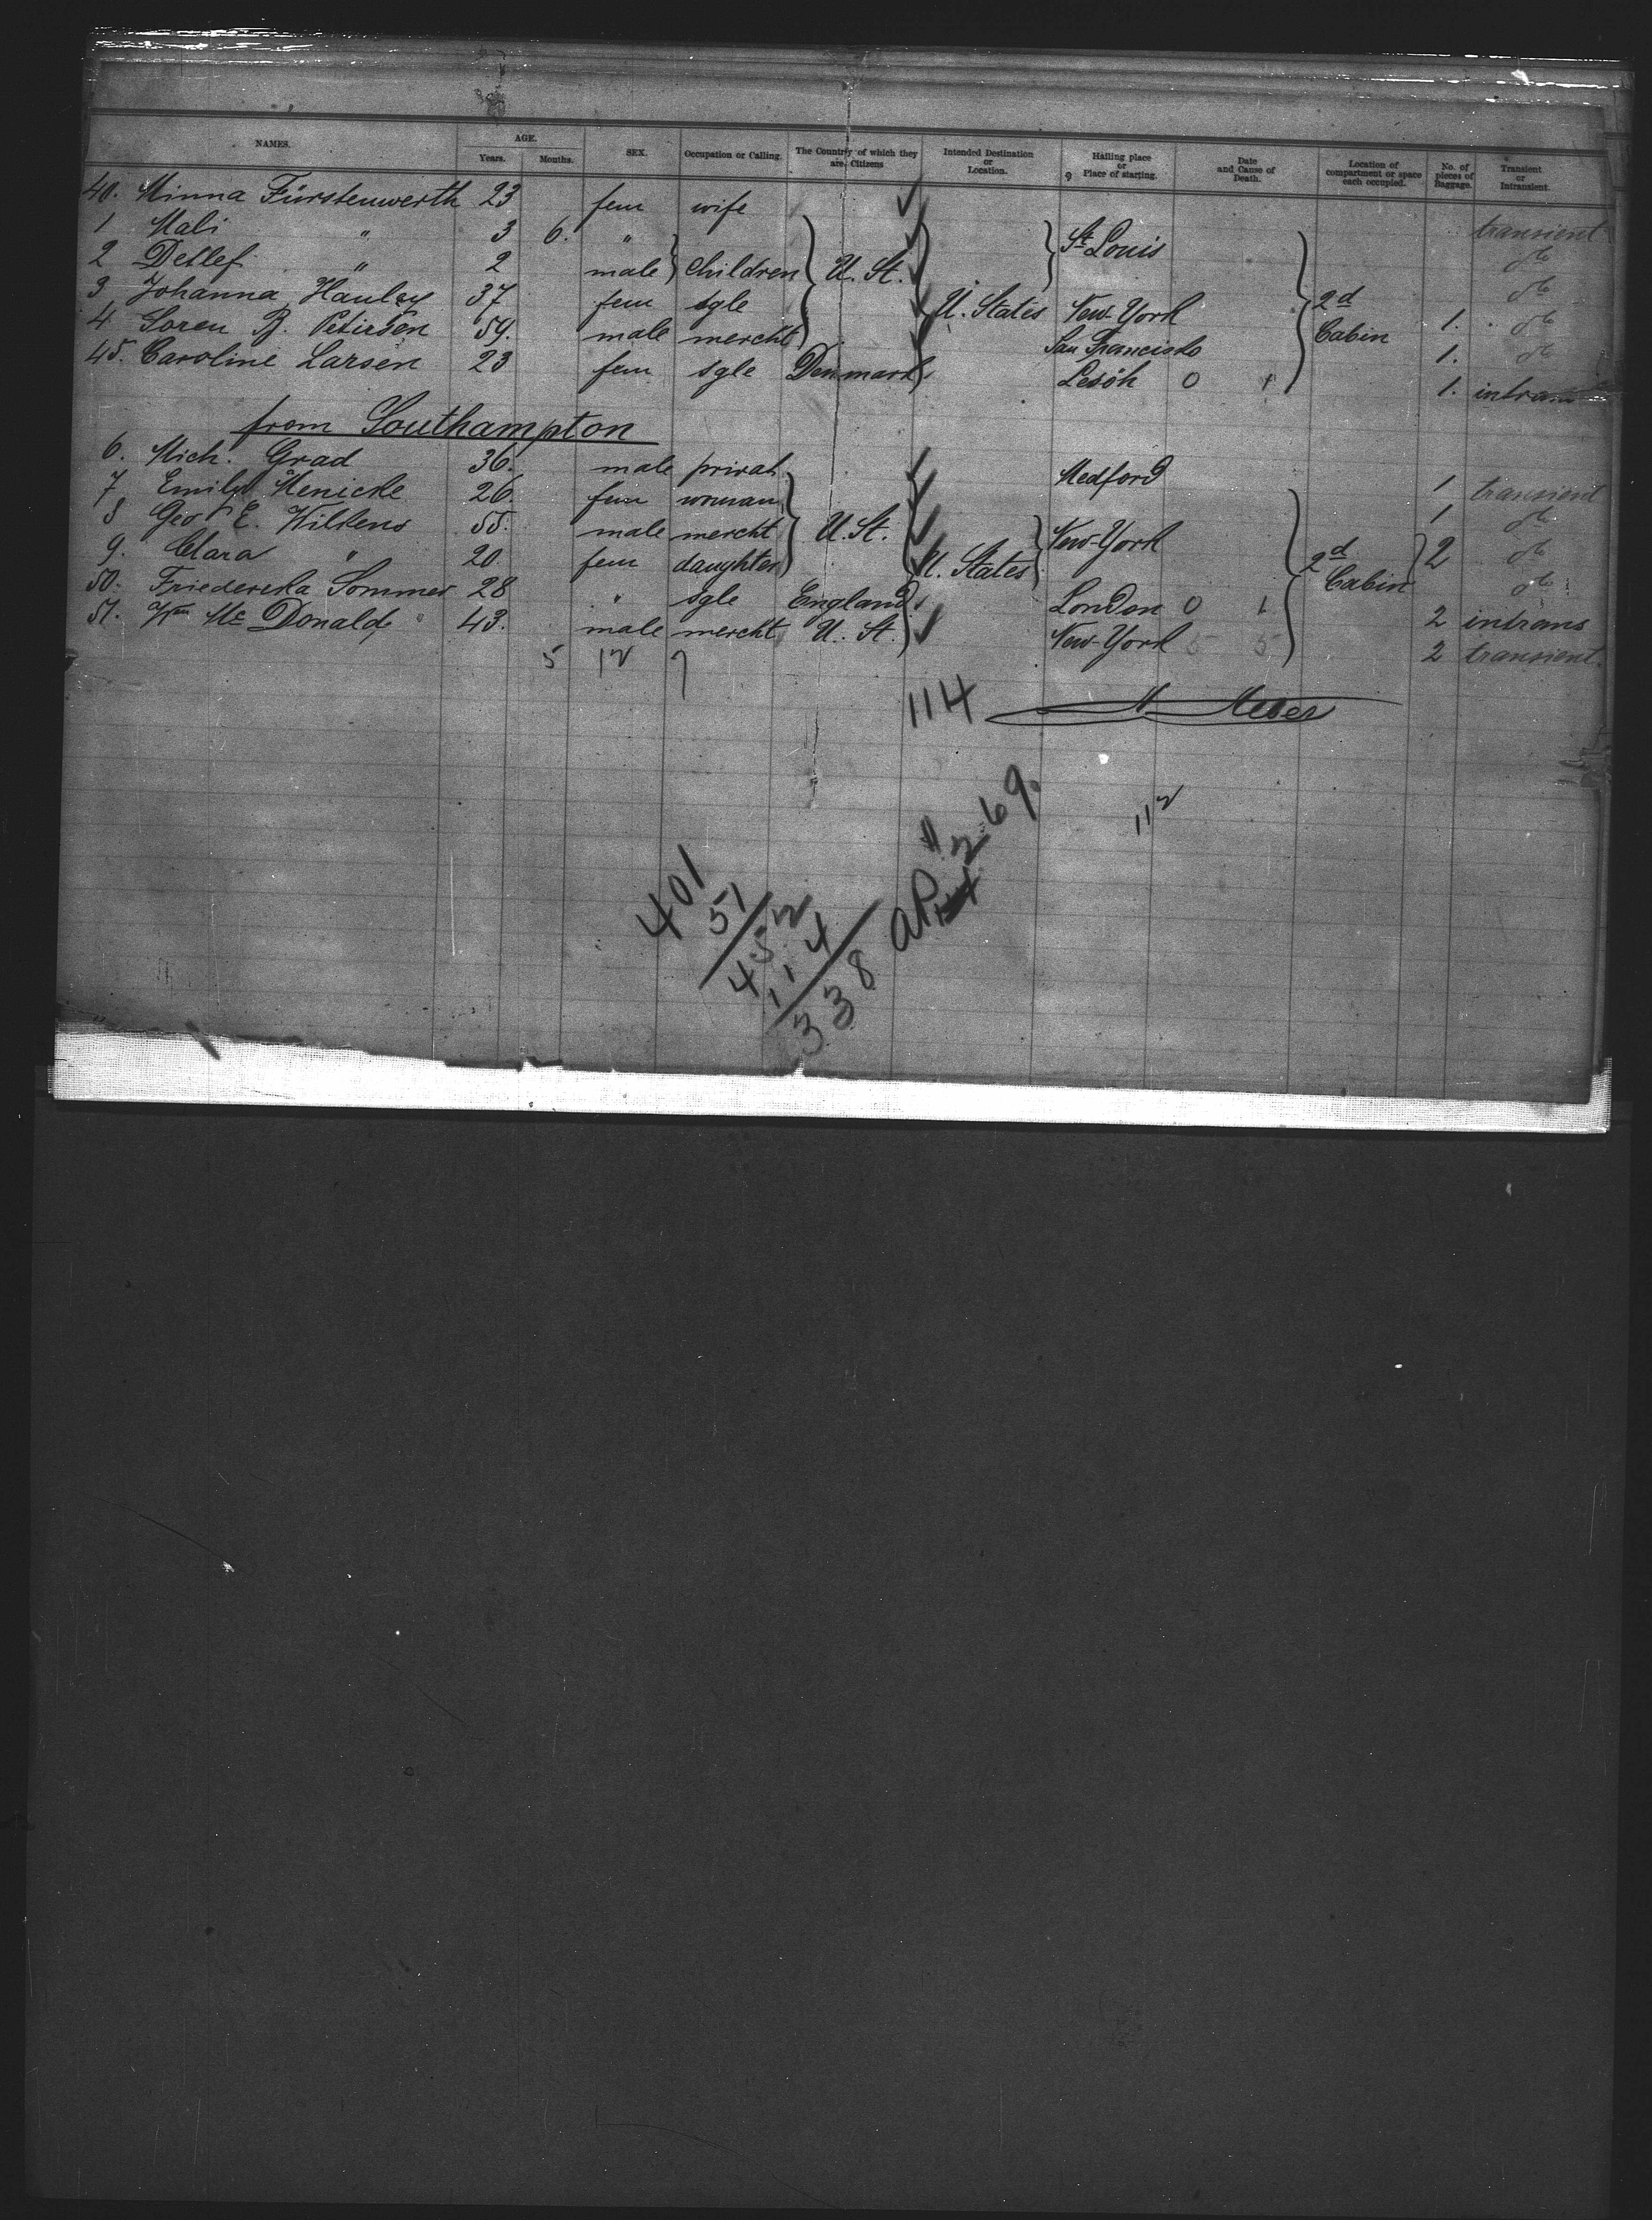 NAMES. AGE. Years. Months. SEX. Occupation or Calling. The Country of which they are Citizens Intended Destination or Location. Hailing place or Place of starting. Date and Cause of Death. Location of compartment or space each occupied. No. of pieces of Baggage. Transient or Intransient.
40. Minna Fürstenwerth 23 fem wife transient
1 Mali " 3 6. " St Louis do
2 Detlef " 2 male children U. St. do
3 Johanna Hauley 37 fem sgle U. States New-York 2d Cabin 1. do
4 Soren B. Petersen 59. male mercht San Francisko 1. do
45. Caroline Larsen 23 fem sgle Denmark 0 1 1. intrans
from Southampton
6. Mich. Grad 36. male privat. Medford 1 transient
7 Emily Menicke 26. fem woman 1 do
8 Geo E. Wilkens 55. male mercht U. St. New-York 2 do
9. Clara " 20. fem daughter U. States 2d Cabin do
50. Friedericka Sommer 28 " sgle England London 0 1 2 intrans
51. Wm Mc Donald 43. male mercht U. St. New-York 5 2 transient.
5 12 7
114
112
401
51
452
114
338